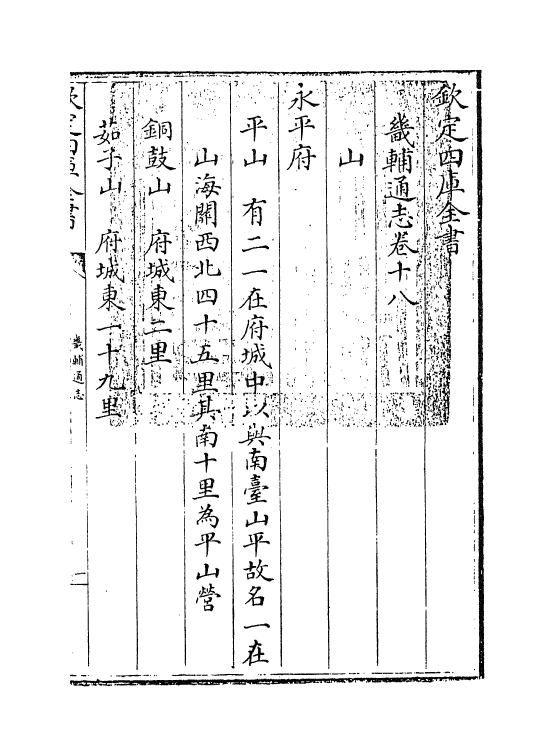 欽定四庫全書
畿輔通志卷十八
山
永平府
平山 有二一在府城中以與南臺山平故名一在
山海關西北四十五里其南十里為平山營
銅鼓山 府城東二里
茹子山 府城東一十九里
欽定四庫全書
畿輔通志